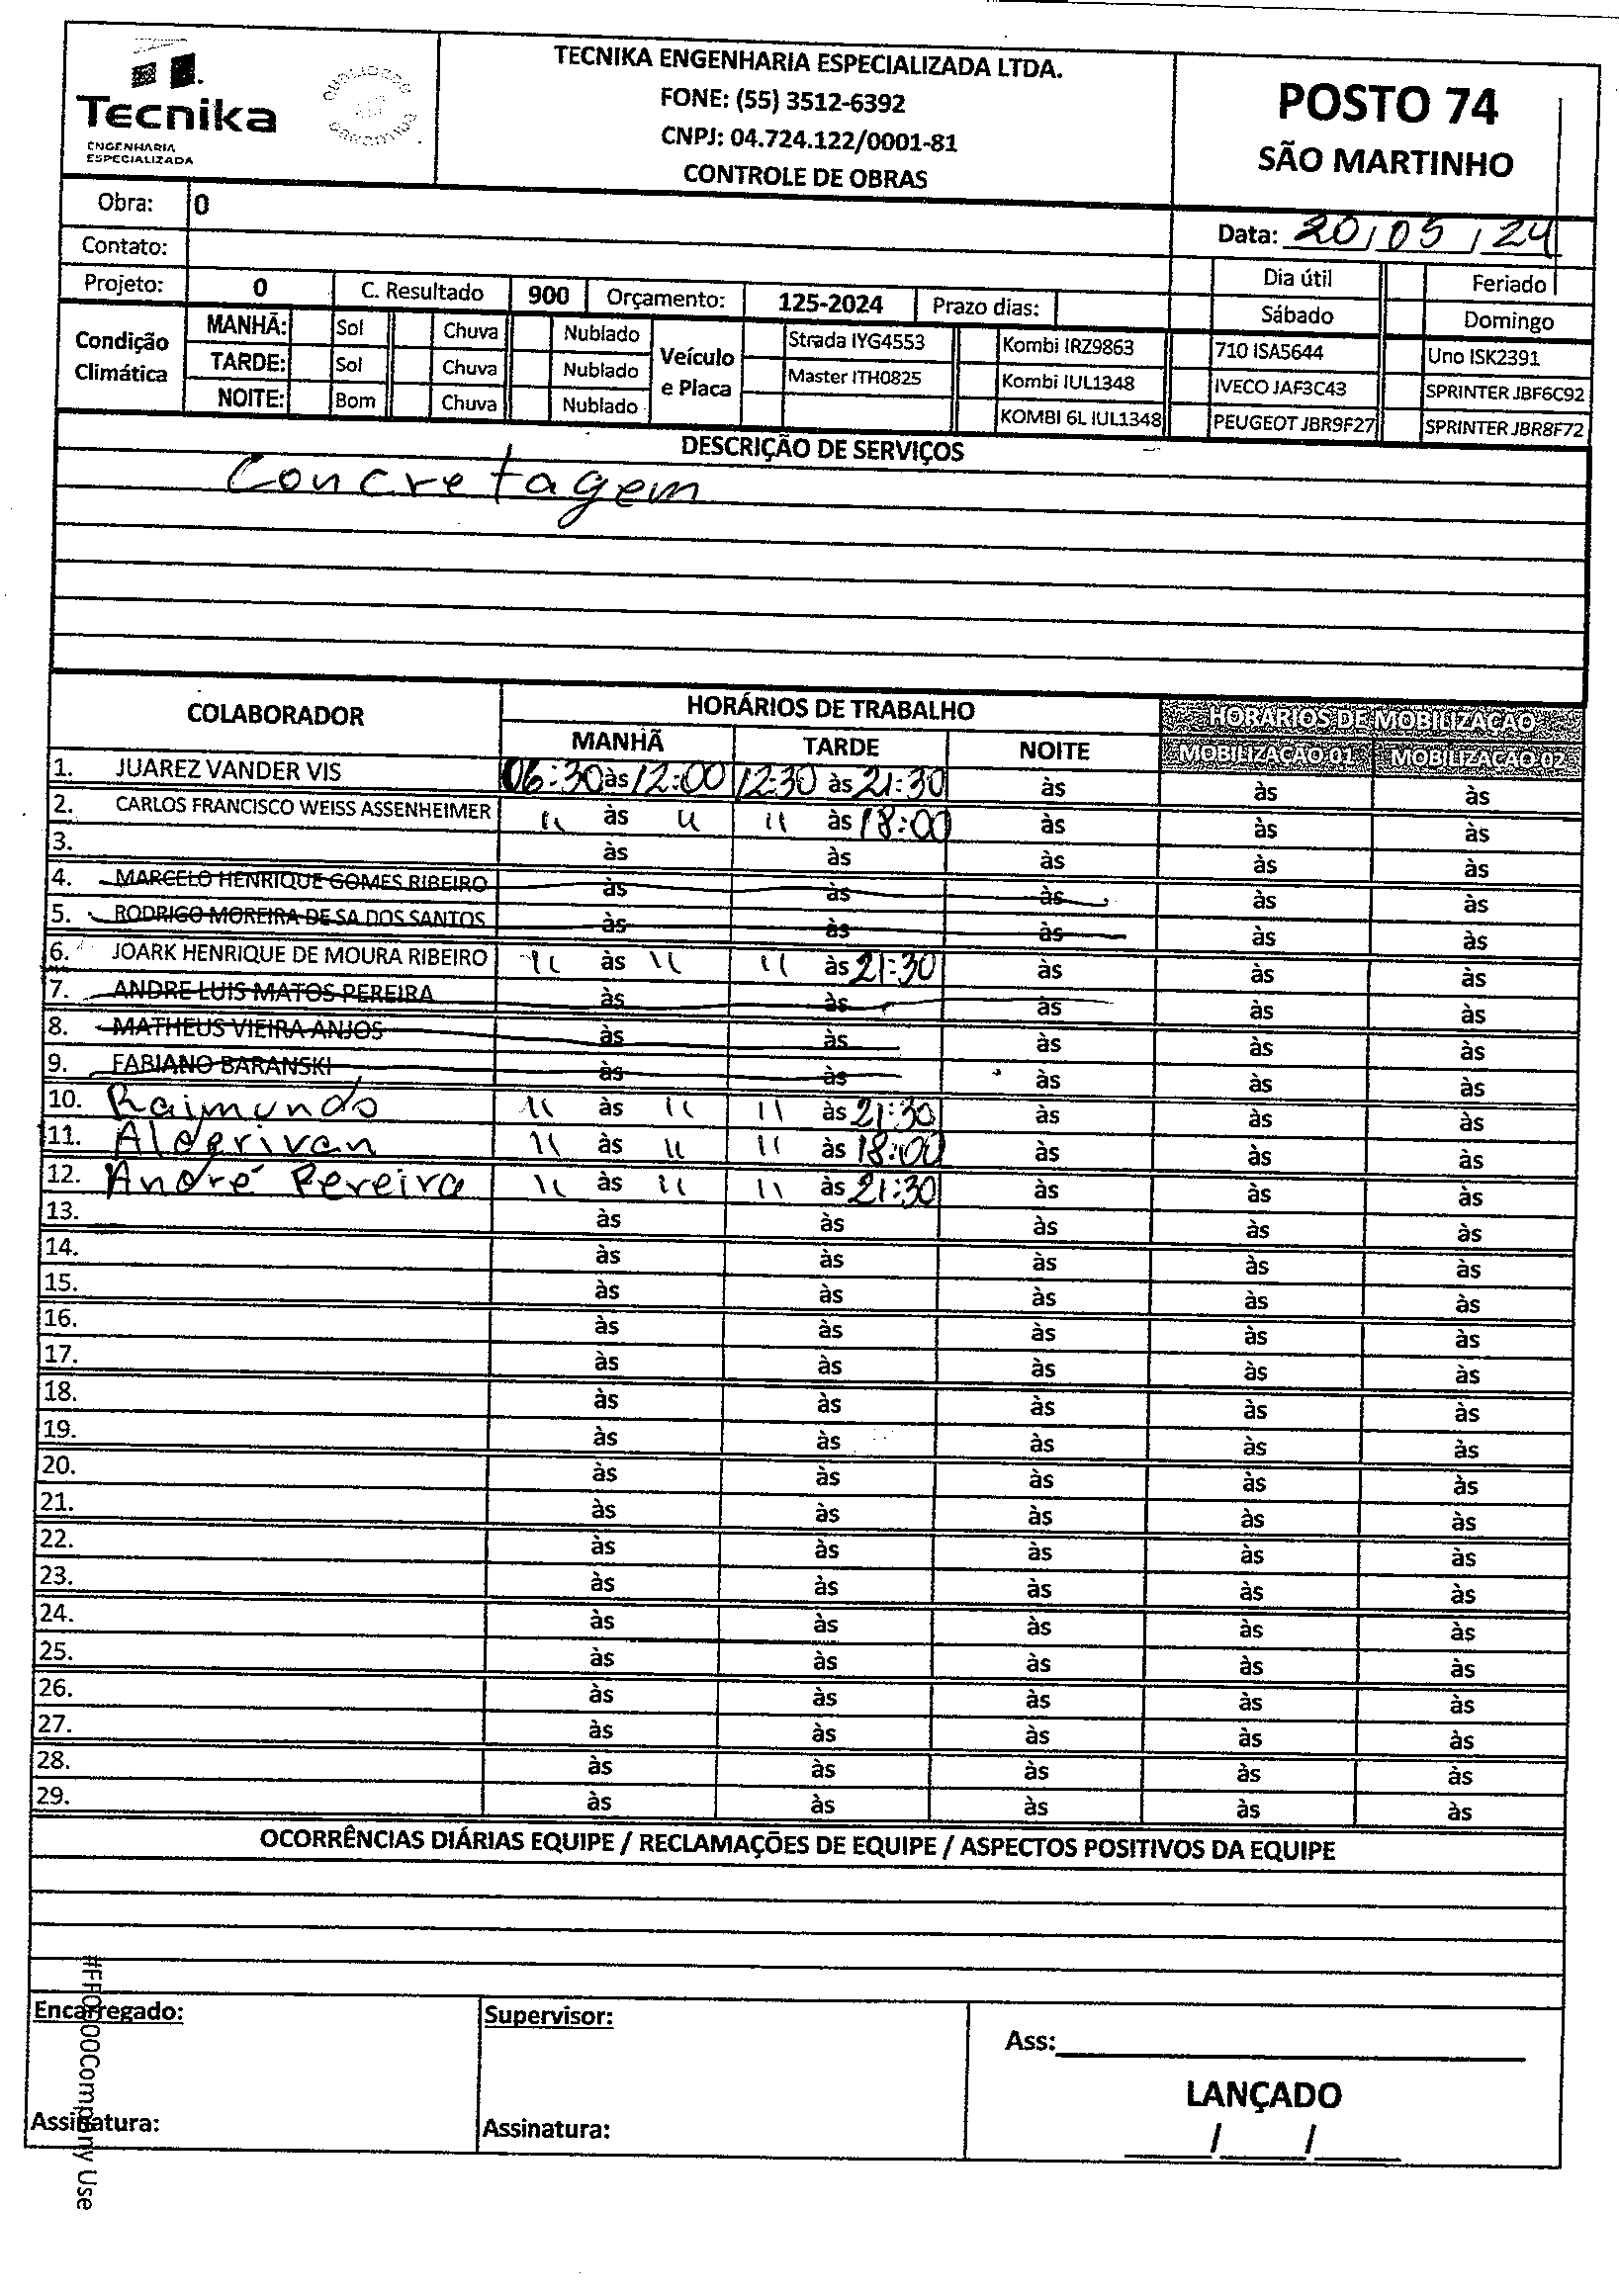 Tecnika
ENGENHARIA
ESPECIALIZADA
TECNIKA ENGENHARIA ESPECIALIZADA LTDA.
FONE: (55) 3512-6392
CNPJ: 04.724.122/0001-81
CONTROLE DE OBRAS
POSTO 74
SÃO MARTINHO
Obra: 0
Data: 20/05/24
Contato:
Dia útil Feriado
Projeto: 0 C. Resultado 900 Orçamento: 125-2024 Prazo dias:
Sábado Domingo
Condição Climática
MANHÃ: Sol Chuva Nublado
TARDE: Sol Chuva Nublado
NOITE: Bom Chuva Nublado
Veículo e Placa
Strada IYG4553 Kombi IRZ9863 710 ISA5644 Uno ISK2391
Master ITH0825 Kombi IUL1348 IVECO JAF3C43 SPRINTER JBF6C92
KOMBI 6L IUL1348 PEUGEOT JBR9F27 SPRINTER JBR8F72
DESCRIÇÃO DE SERVIÇOS
Concretagem
COLABORADOR HORÁRIOS DE TRABALHO HORÁRIOS DE MOBILIZAÇÃO
MANHÃ TARDE NOITE MOBILIZAÇÃO 01 MOBILIZAÇÃO 02
1. JUAREZ VANDER VIS 06:30 às 12:00 12:30 às 21:30 às às às
2. CARLOS FRANCISCO WEISS ASSENHEIMER " às " " às 18:00 às às às
3. às às às às às
4. MARCELO HENRIQUE GOMES RIBEIRO às às às às às
5. RODRIGO MOREIRA DE SA DOS SANTOS às às às às às
6. JOARK HENRIQUE DE MOURA RIBEIRO " às " " às 21:30 às às às
7. ANDRE LUIS MATOS PEREIRA às às às às às
8. MATHEUS VIEIRA ANJOS às às às às às
9. FABIANO BARANSKI às às às às às
10. Raimundo " às " " às 21:30 às às às
11. Alderivan " às " " às 18:00 às às às
12. André Pereira " às " " às 21:30 às às às
13. às às às às às
14. às às às às às
15. às às às às às
16. às às às às às
17. às às às às às
18. às às às às às
19. às às às às às
20. às às às às às
21. às às às às às
22. às às às às às
23. às às às às às
24. às às às às às
25. às às às às às
26. às às às às às
27. às às às às às
28. às às às às às
29. às às às às às
OCORRÊNCIAS DIÁRIAS EQUIPE / RECLAMAÇÕES DE EQUIPE / ASPECTOS POSITIVOS DA EQUIPE
Encarregado: Supervisor:
Ass:
LANÇADO
Assinatura: Assinatura:
/ /
#FF0000Company Use